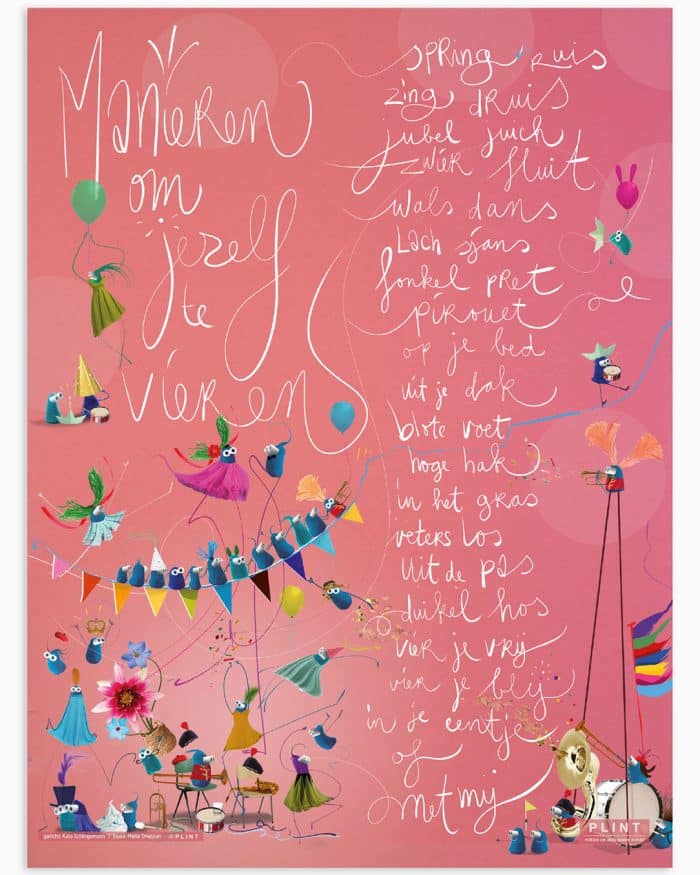 Manieren
om
jezelf
te
vieren
spring ruis
zing druis
jubel juich
zwier fluit
wals dans
Lach sjans
fonkel pret
pirouet
op je bed
uit je dak
blote voet
hoge hak
in het gras
veters los
Uit de pas
duikel hos
vier je vrij
vier je blij
in je eentje
of
met mij
gedicht Kate Schlingemann
© PLINT
PLINT